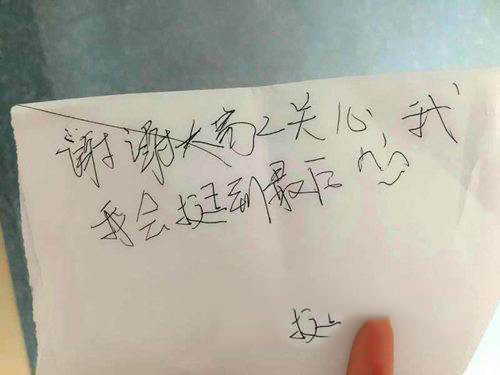 谢谢大高关心,我
我会挺到最后